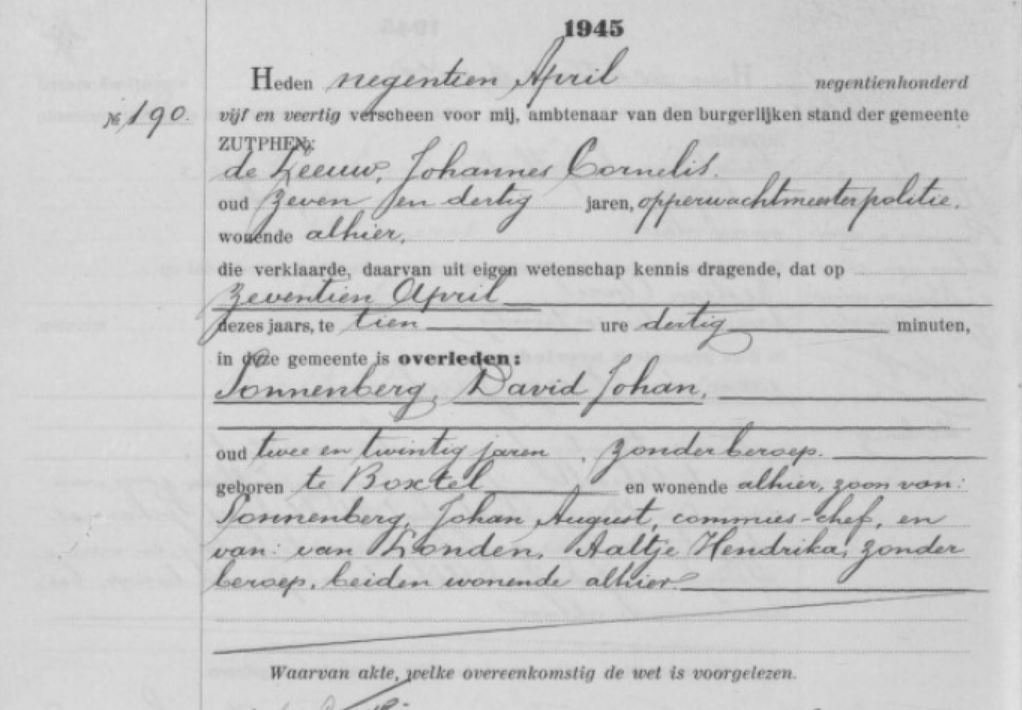 1945
Heden negentien April negentienhonderd
№ 190. vijf en veertig verscheen voor mij, ambtenaar van den burgerlijken stand der gemeente
ZUTPHEN:
de Leeuw, Johannes Cornelis.
oud zeven en dertig jaren, opperwachtmeester politie.
wonende alhier,
die verklaarde, daarvan uit eigen wetenschap kennis dragende, dat op
zeventien April
dezes jaars, te tien ure dertig minuten,
in deze gemeente is overleden:
Sonnenberg, David Johan,
oud twee en twintig jaren, zonder beroep.
geboren te Boxtel en wonende alhier, zoon van:
Sonnenberg, Johan August, commies-chef, en
van: van Londen, Aaltje Hendrika, zonder
beroep, beiden wonende alhier.
Waarvan akte, welke overeenkomstig de wet is voorgelezen.